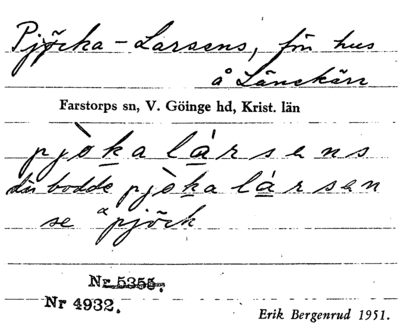 Pjöcka-Larsens, fön hus
å Länskärr
Farstorps sn, V. Göinge hd, Krist. län
pjòka lársens
där bodde pjòka lársen
se pjöck
Nr 5355.
Nr 4932.
Erik Bergenrud 1951.